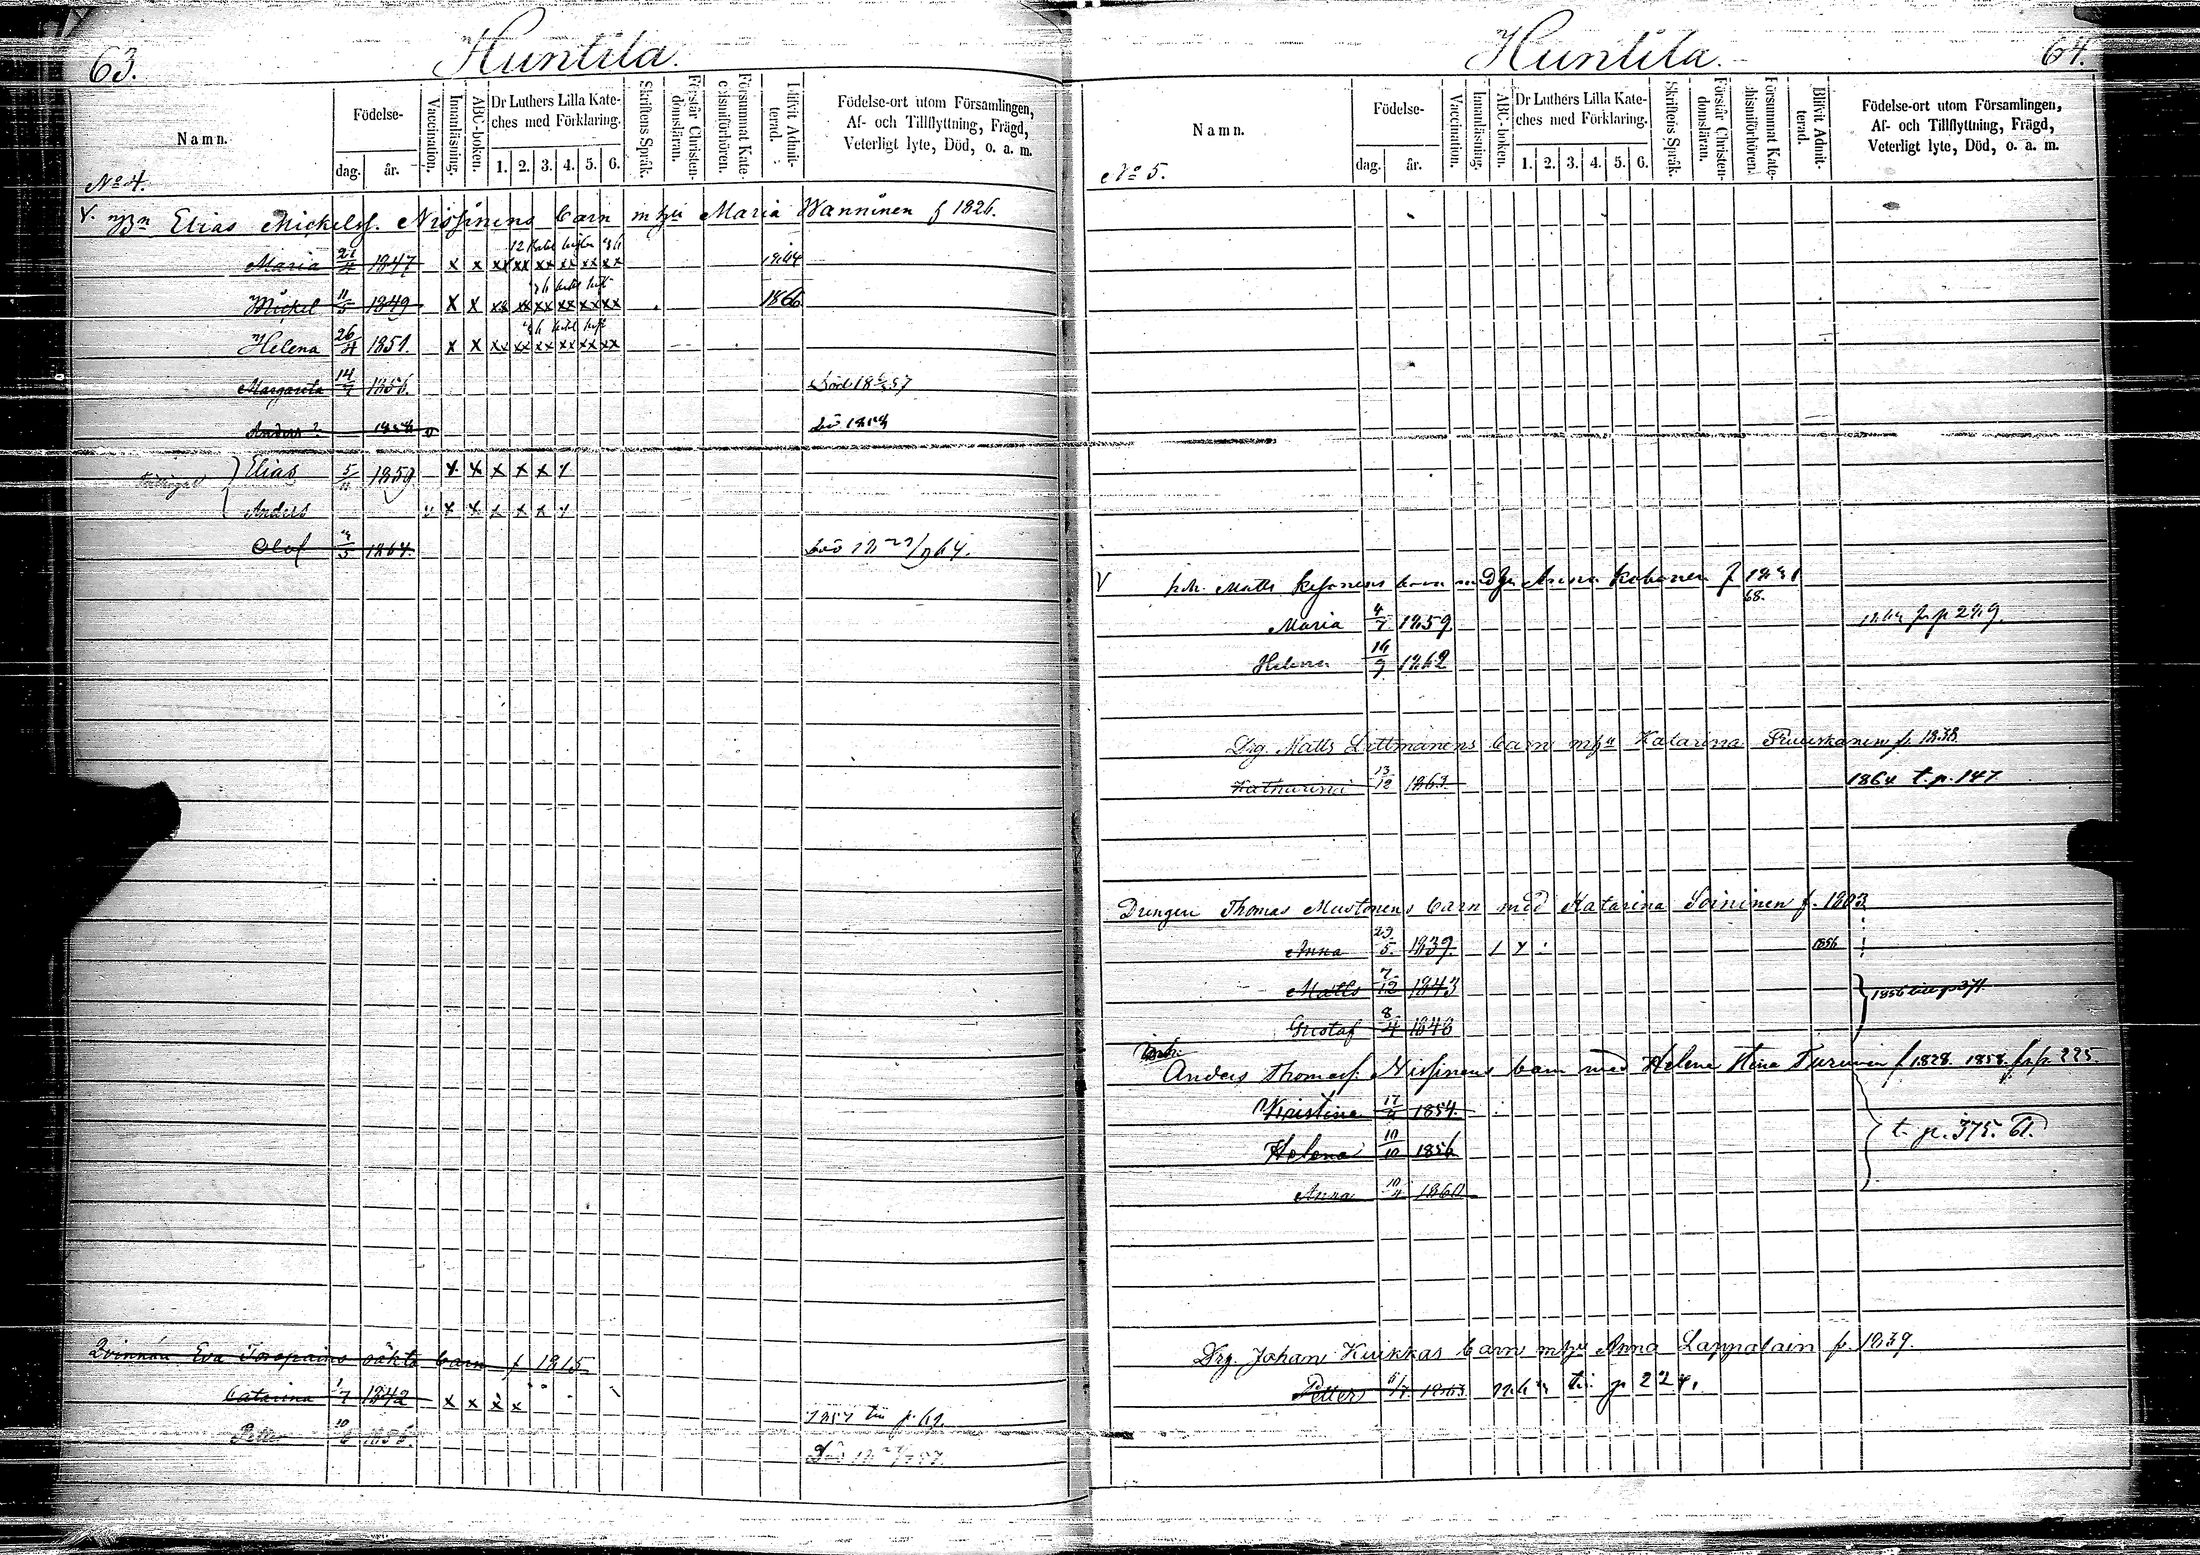 63.
Huntila.
Namn.
Födelse-
dag.
år.
Vaccination.
Innanläsning.
ABC-boken.
Dr Luthers Lilla Kate-
ches med Förklaring.
1. 2. 3. 4. 5. 6.
Skriftens Språk.
Förstår Christen-
domsläran.
Försummat Kate-
chismiförhören.
Blifvit Admit-
terad.
Födelse-ort utom Församlingen,
Af- och Tillflyttning, Frägd,
Veterligt lyte, Död, o. a. m.
No 4.
V. Bn Elias Mickelsf. Nissinens barn m hu Maria Wanninen f 1826.
Maria 21/4 1847 x x xx xx xx xx xx xx 1864
Mickel 11/5 1849 x x xx xx xx xx xx xx 1866
Helena 26/4 1851. x x xx xx xx xx xx xx
Margareta 14/7 1856. död 18 57
Anders 1858 v dö 1858
Elias 5/11 1859 x x x x x x
Anders v x x x x x x
Olof 3/5 1864. död 18 27/9 64.
Qvinnan Eva Toropains oäkta barn f 1815
Catarina 1/7 1842 x x x x 1857 till p. 61.
Petter 10/6 1856. Död 18 57.
Huntila.
64.
Namn.
Födelse-
dag.
år.
Vaccination.
Innanläsning.
ABC-boken.
Dr Luthers Lilla Kate-
ches med Förklaring.
1. 2. 3. 4. 5. 6.
Skriftens Språk.
Förstår Christen-
domsläran.
Försummat Kate-
chismiförhören.
Blifvit Admit-
terad.
Födelse-ort utom Församlingen,
Af- och Tillflyttning, Frägd,
Veterligt lyte, Död, o. a. m.
No 5.
V Matts barn med hu Anna f 1831
68.
Maria 4/7 1859 fr p 249
Helena 16/9 1862
Drg. Matts Dettmanens barn mhu Katarina Ruuskanen f. 1838.
Katharina 13/12 1863. 1864 t. p. 147
Drengen Thomas Mustonens barn med Katarina Soininen f. 1803
Anna 29/5. 1839. 1856
Matts 7/12 1843 1856 till p 371.
Gustaf 8/4 1848
Anders Thomasf. Nissinens barn med Helena Stina Turunen f 1828. 1858. fr p. 225.
Kristina 17/4 1854.
Helena 10/10 1856 t. p. 375. 61.
Anna 10/4 1860
Drg. Johan Kuikkas barn mhu Anna Lappalain f. 1839.
Petter 5/7 1863 p 224.